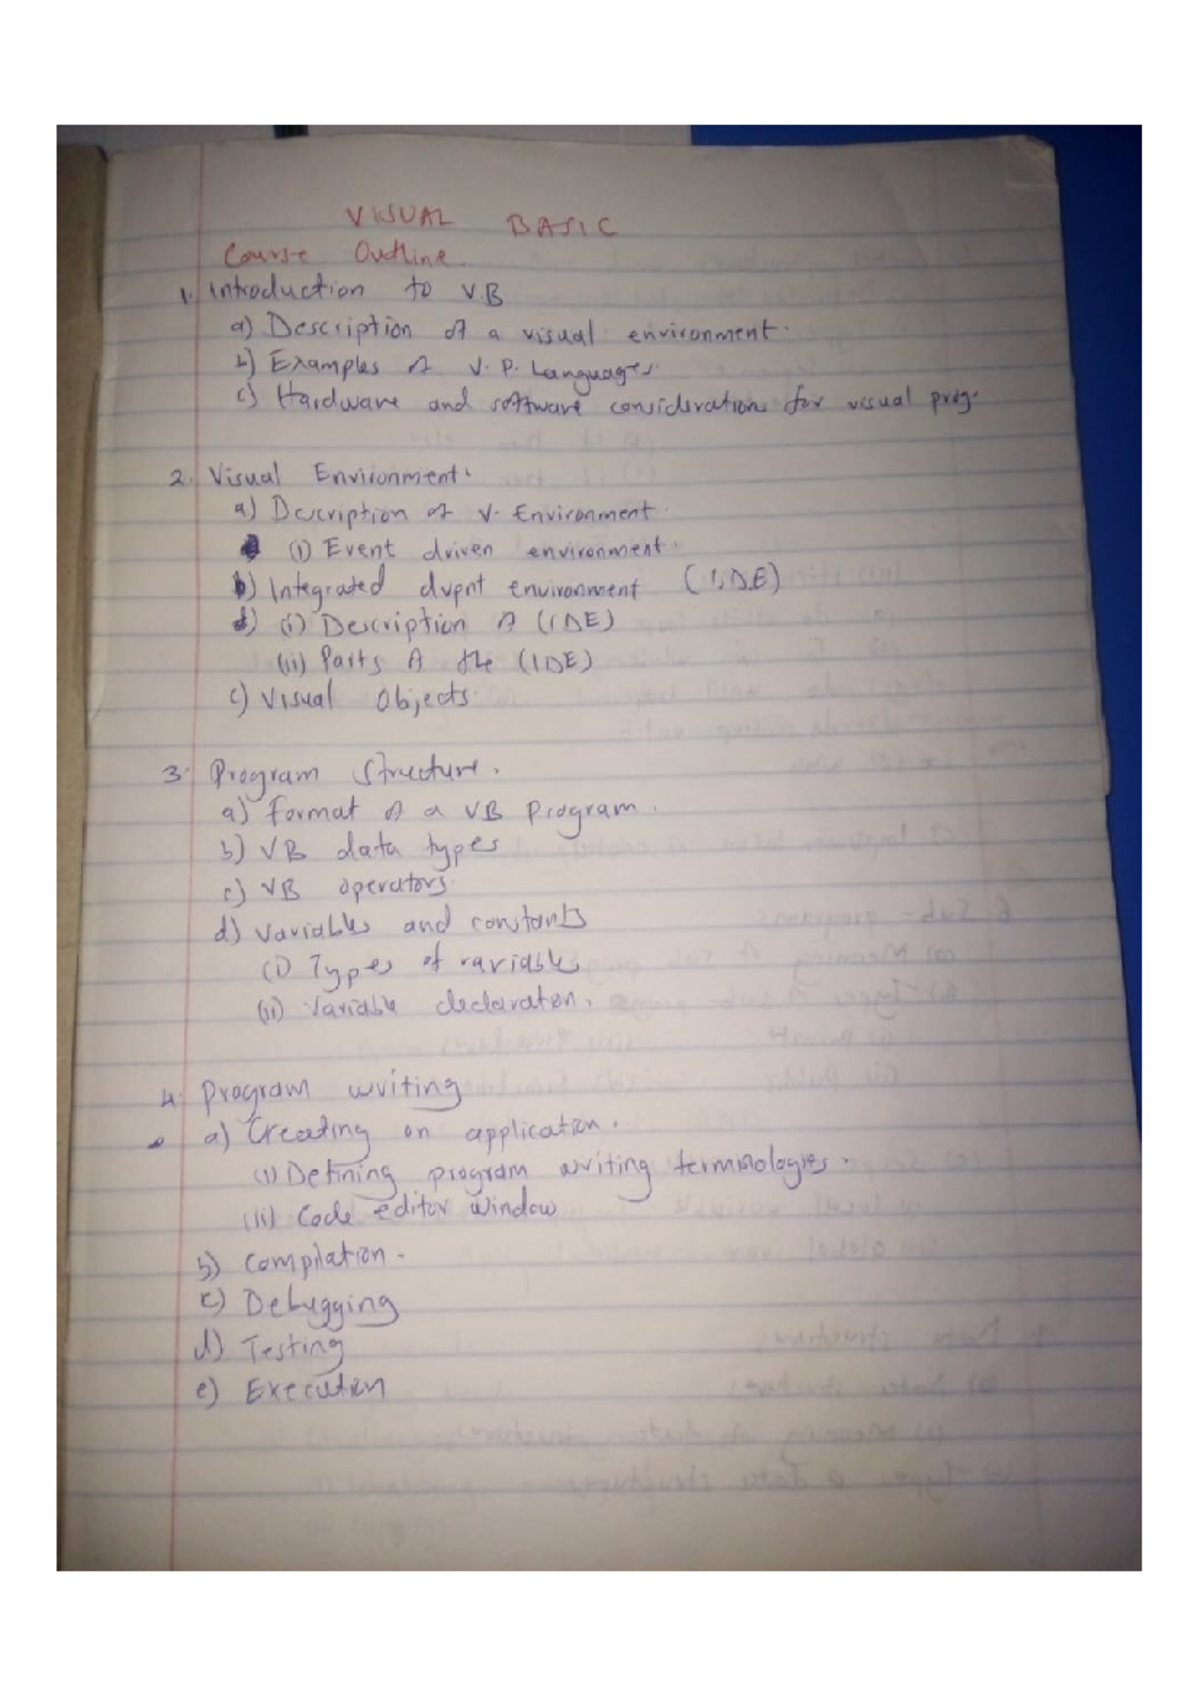 VISUAL BASIC
Course Outline.
1. Introduction to V.B
a) Description of a visual environment.
b) Examples of V. P. Languages.
c) Hardware and software considerations for visual prog.
2. Visual Environment.
a) Description of V. Environment.
(i) Event driven environment.
b) Integrated dvpnt environment (I.D.E)
d) (i) Description of (IDE)
(ii) Parts of the (IDE)
c) Visual Objects.
3. Program Structure.
a) Format of a VB program.
b) VB data types
c) VB operators.
d) Variables and constants
(i) Types of variables
(ii) Variable declaration.
4. Program writing
a) Creating an application.
(i) Defining program writing terminologies.
(ii) Code editor window
b) Compilation.
c) Debugging
d) Testing
e) Execution